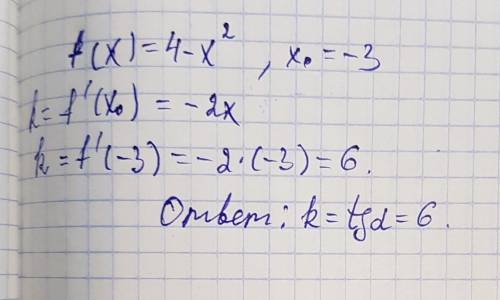 f(x) = 4 - x², x₀ = -3
k = f'(x₀) = -2x
k = f'(-3) = -2·(-3) = 6.
Ответ: k = tgα = 6.